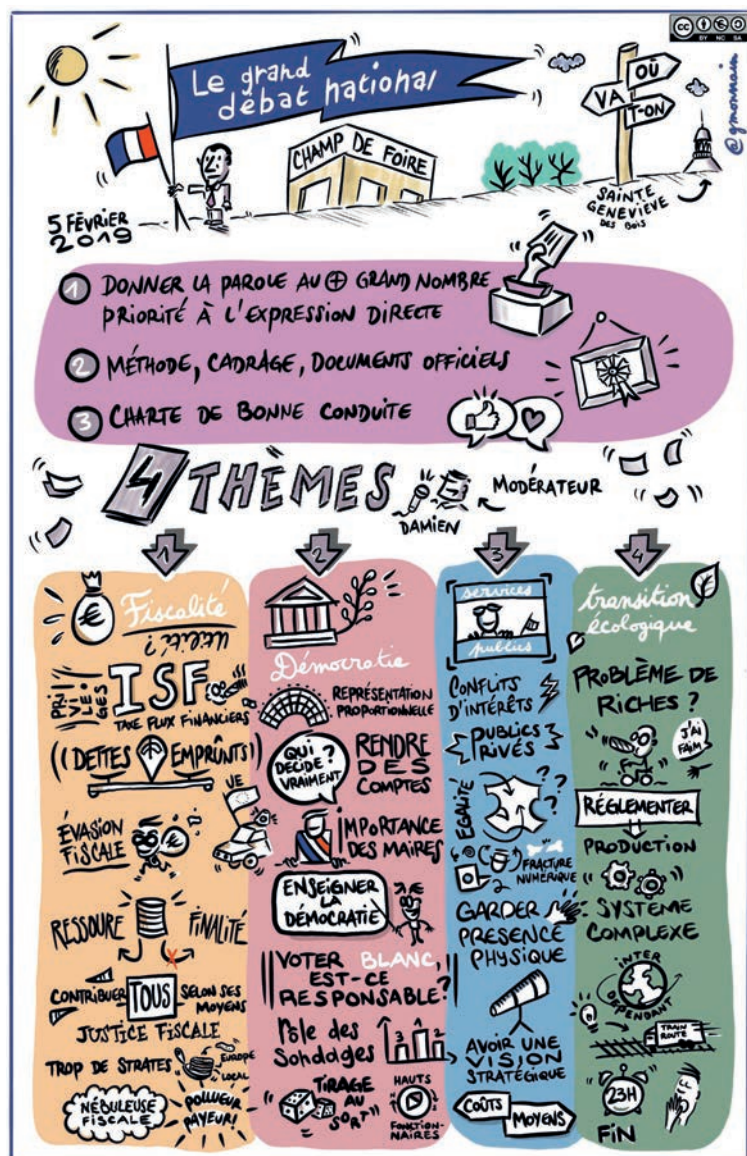 BY NC SA
Le grand
débat national
OÙ
VA
T-ON
@gmonnain
CHAMP DE FOIRE
SAINTE
GENEVIÈVE
DES BOIS
5 FÉVRIER
2019
1 DONNER LA PAROLE AU + GRAND NOMBRE
PRIORITÉ À L'EXPRESSION DIRECTE
2 MÉTHODE, CADRAGE, DOCUMENTS OFFICIELS
3 CHARTE DE BONNE CONDUITE
4 THÈMES
DAMIEN
MODÉRATEUR
1
Fiscalité
utilité?
PRIVILÈGES
ISF
TAXE FLUX FINANCIERS
DETTES EMPRÛNTS
UE
ÉVASION
FISCALE
RESSOURE FINALITÉ
CONTRIBUER TOUS SELON SES
MOYENS
JUSTICE FISCALE
TROP DE STRATES
EUROPE
LOCAL
NÉBULEUSE
FISCALE
POLLUEUR
PAYEUR!
2
Démocratie
REPRÉSENTATION
PROPORTIONNELLE
QUI
DÉCIDE?
VRAIMENT
RENDRE
DES
COMPTES
IMPORTANCE
DES MAIRES
ENSEIGNER
LA
DÉMOCRATIE
VOTER BLANC,
EST-CE
RESPONSABLE?
Rôle des
Sondages
3 1 2
TIRAGE
AU
SORT
HAUTS
FONCTION-
NAIRES
3
services
publics
CONFLITS
D'INTÉRÊTS
PUBLICS
PRIVÉS
ÉGALITÉ
? ? ?
FRACTURE
NUMÉRIQUE
GARDER
PRESENCE
PHYSIQUE
AVOIR UNE
VISION
STRATÉGIQUE
COÛTS
MOYENS
4
transition
écologique
PROBLÈME DE
RICHES ?
J'AI
FAIM
RÉGLEMENTER
PRODUCTION
SYSTEME
COMPLEXE
INTER
DEPENDANT
TRAIN
ROUTE
23H
FIN